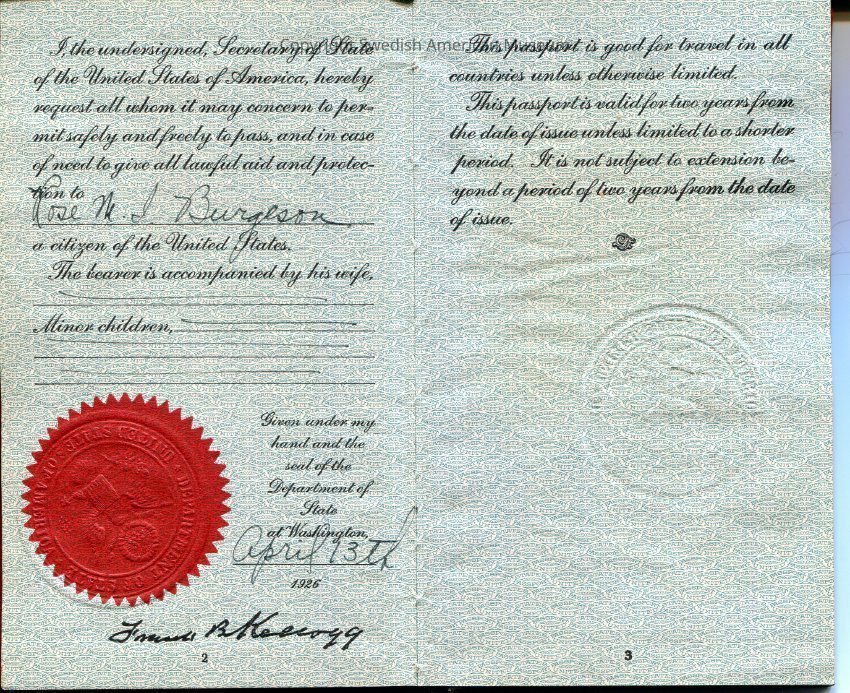 Copyright Swedish American Museum
I, the undersigned, Secretary of State
of the United States of America, hereby
request all whom it may concern to per-
mit safely and freely to pass, and in case
of need to give all lawful aid and protec-
tion to
Rose M. I. Burgeson
a citizen of the United States.
The bearer is accompanied by his wife,
Minor children,
Given under my
hand and the
seal of the
Department of
State
at Washington,
April 13th
1926
Frank B. Kellogg
2
This passport is good for travel in all
countries unless otherwise limited.
This passport is valid for two years from
the date of issue unless limited to a shorter
period. It is not subject to extension be-
yond a period of two years from the date
of issue.
3